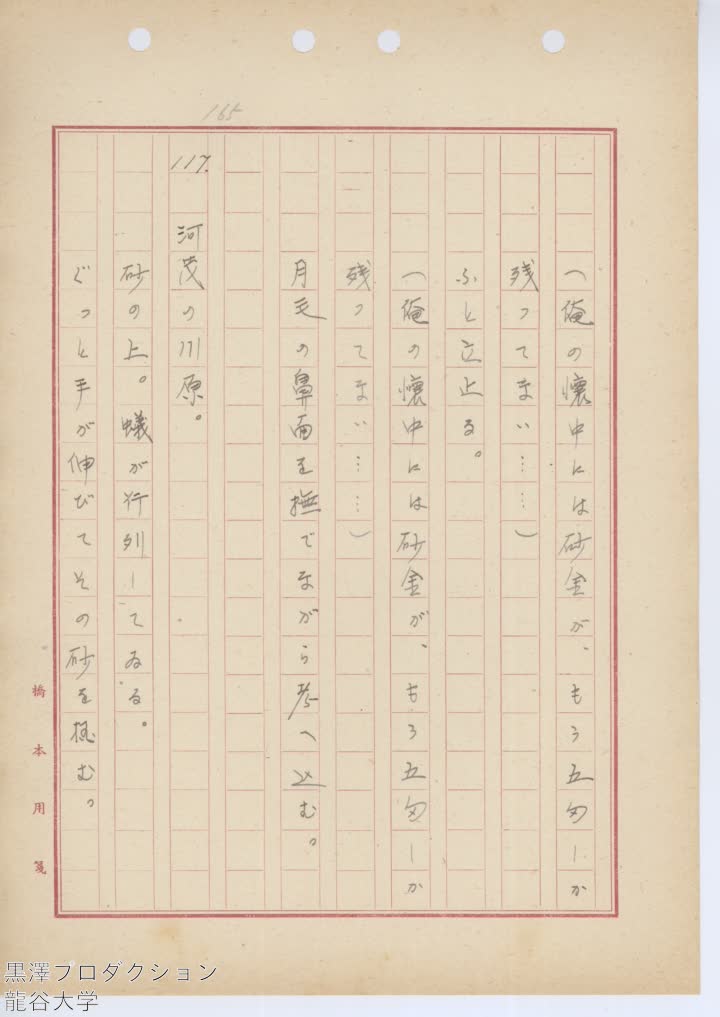 165
（俺の懐中には砂金が、もう五匁しか
残ってない……）
ふと立止る。
（俺の懐中には砂金が、もう五匁しか
残ってない……）
月毛の鼻面を撫でながら考へ込む。
117.
河茂の川原。
砂の上。蟻が行列してゐる。
ぐっと手が伸びてその砂を掴む。
橋本用箋
黒澤プロダクション
龍谷大学